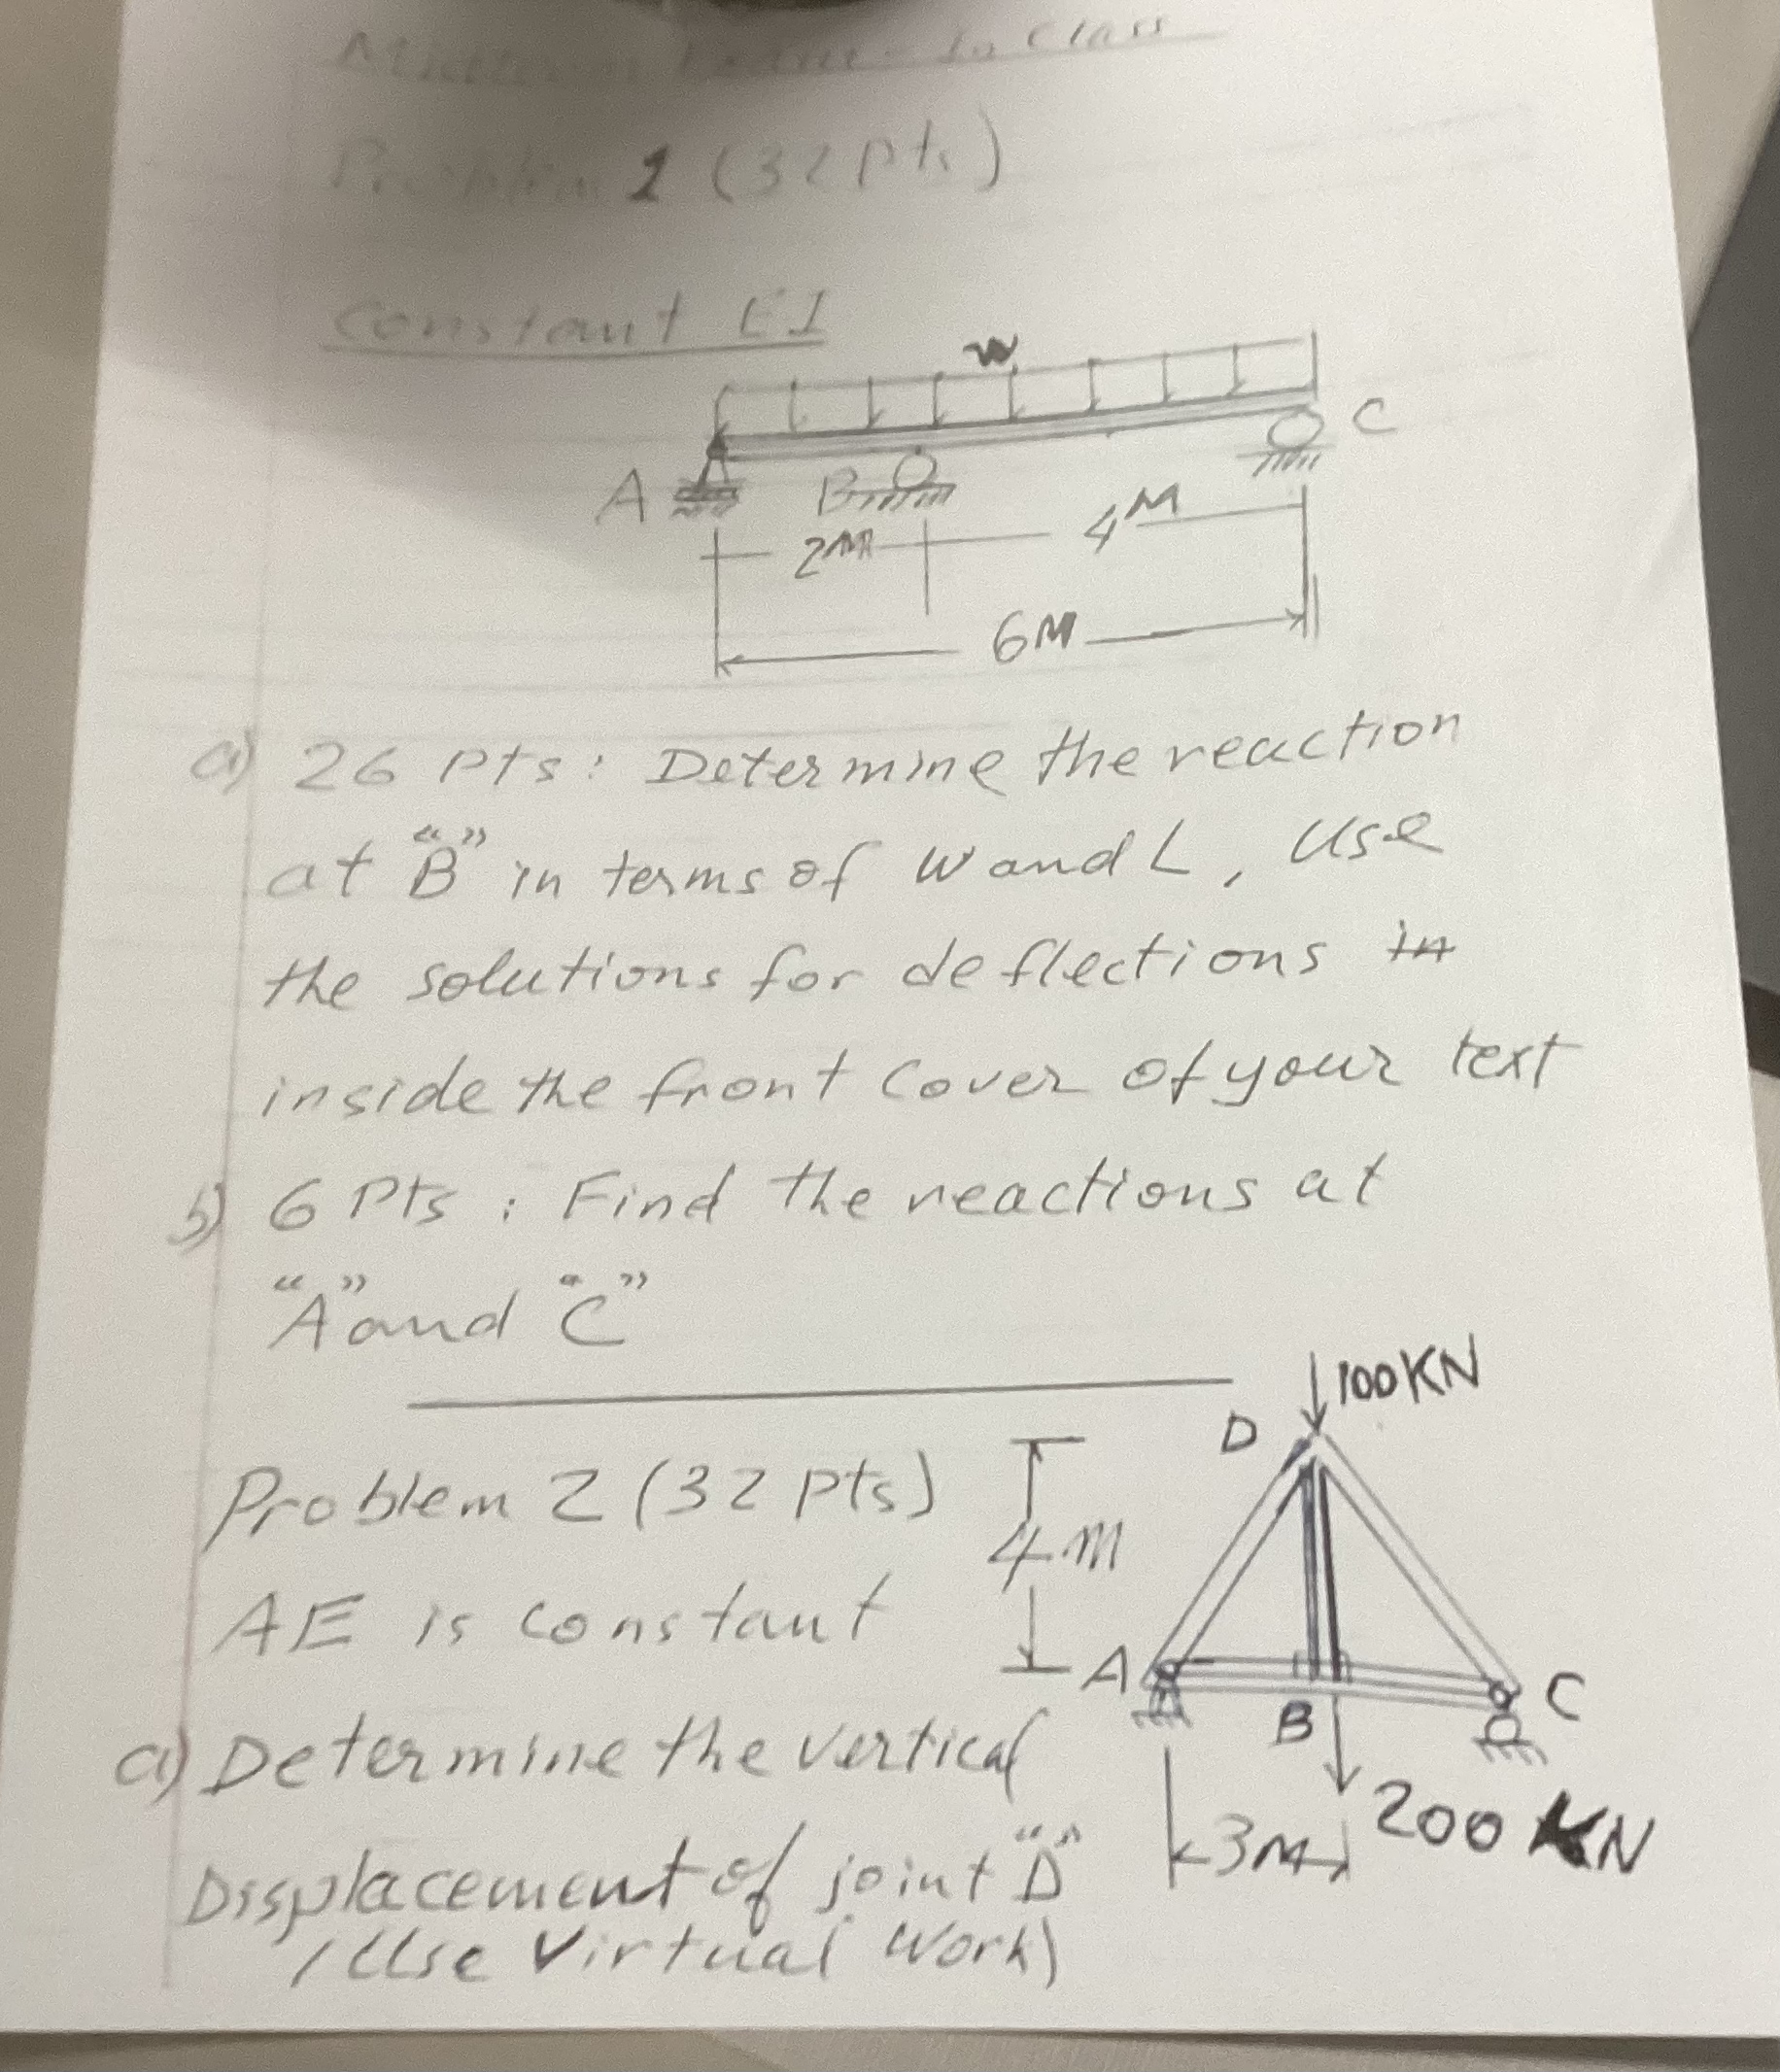 In Class
Problem 1 (32 pts)
Constant EI
w
C
A
B
2M
4M
6M
a) 26 Pts: Determine the reaction
at "B" in terms of w and L, use
the solutions for deflections in
inside the front cover of your text
b) 6 Pts: Find the reactions at
"A" and "C"
100KN
D
Problem 2 (32 pts)
4m
AE is constant
A
C
B
a) Determine the vertical
200 KN
3M
Displacement of joint "D"
(Use Virtual Work)